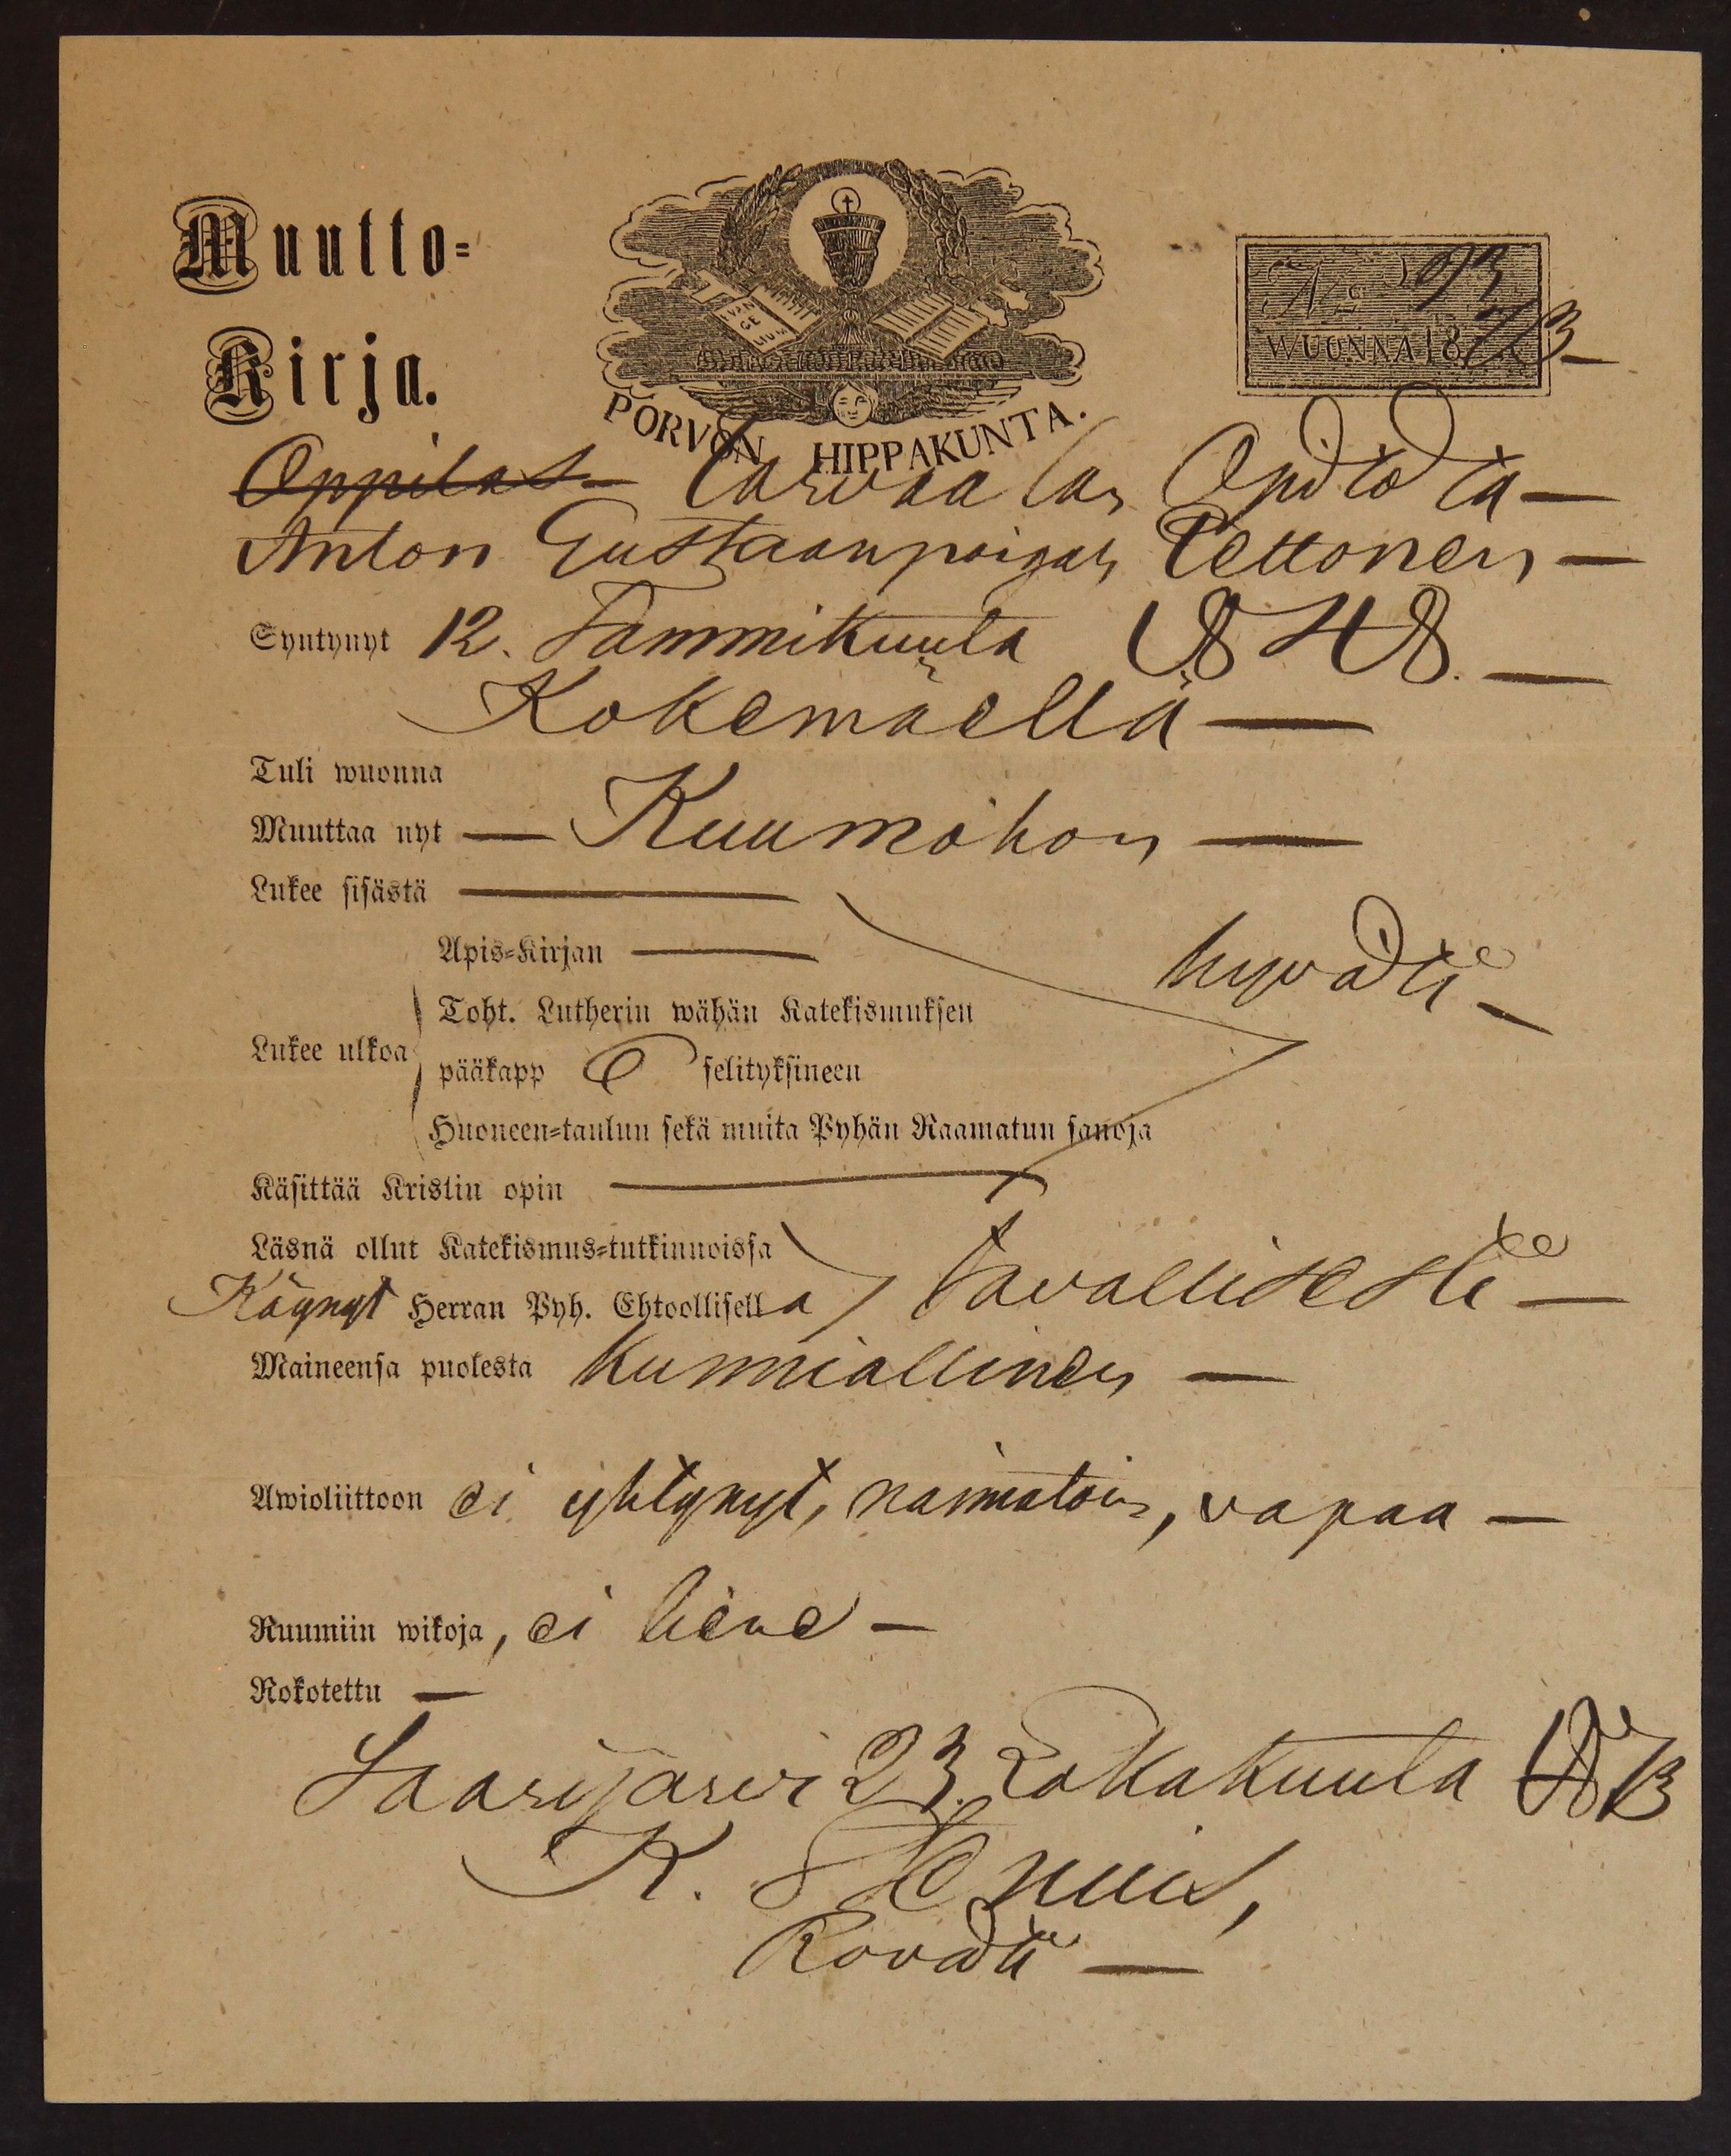 Muutto=
Kirja.
EVAN
GE
LIUM
PORVON HIPPAKUNTA.
No 193
WUONNA 1873
Oppilas Tarvaalan Opistosta
Anton Eustaanpoigan Pettonen
Syntynyt 12. Tammikuuta 1848.
Kokemäellä
Tuli wuonna
Muuttaa nyt Kuumohon
Lukee sisästä
Apis=Kirjan
hyvästi
Toht. Lutherin wähän Katekismuksen
Lukee ulkoa
pääkapp selityksineen
Huoneen=taulun sekä muita Pyhän Raamatun sanoja
Käsittää Kristin opin
Läsnä ollut Katekismus=tutkinnoissa
Käynyt Herran Pyh. Ehtoollisella tavallisesti
Maineensa puolesta kunniallinen
Awioliittoon ei yhtynyt, naimatoin, vapaa
Ruumiin wikoja, ei liene
Rokotettu
Saarijärvi 23. Lokakuuta 1873
K.
Rovasti